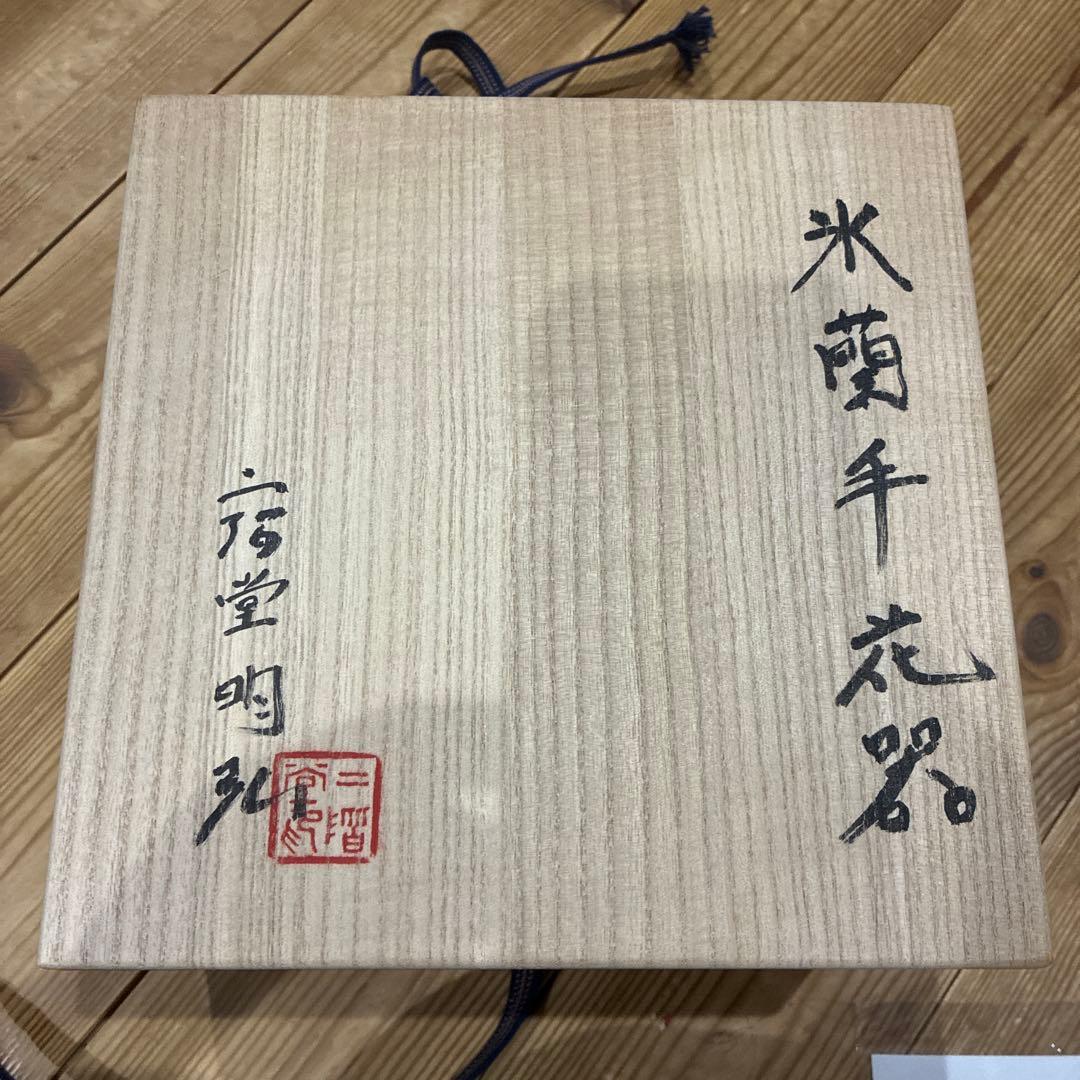 氷蘭手 花器
二階堂明弘
二階
堂印